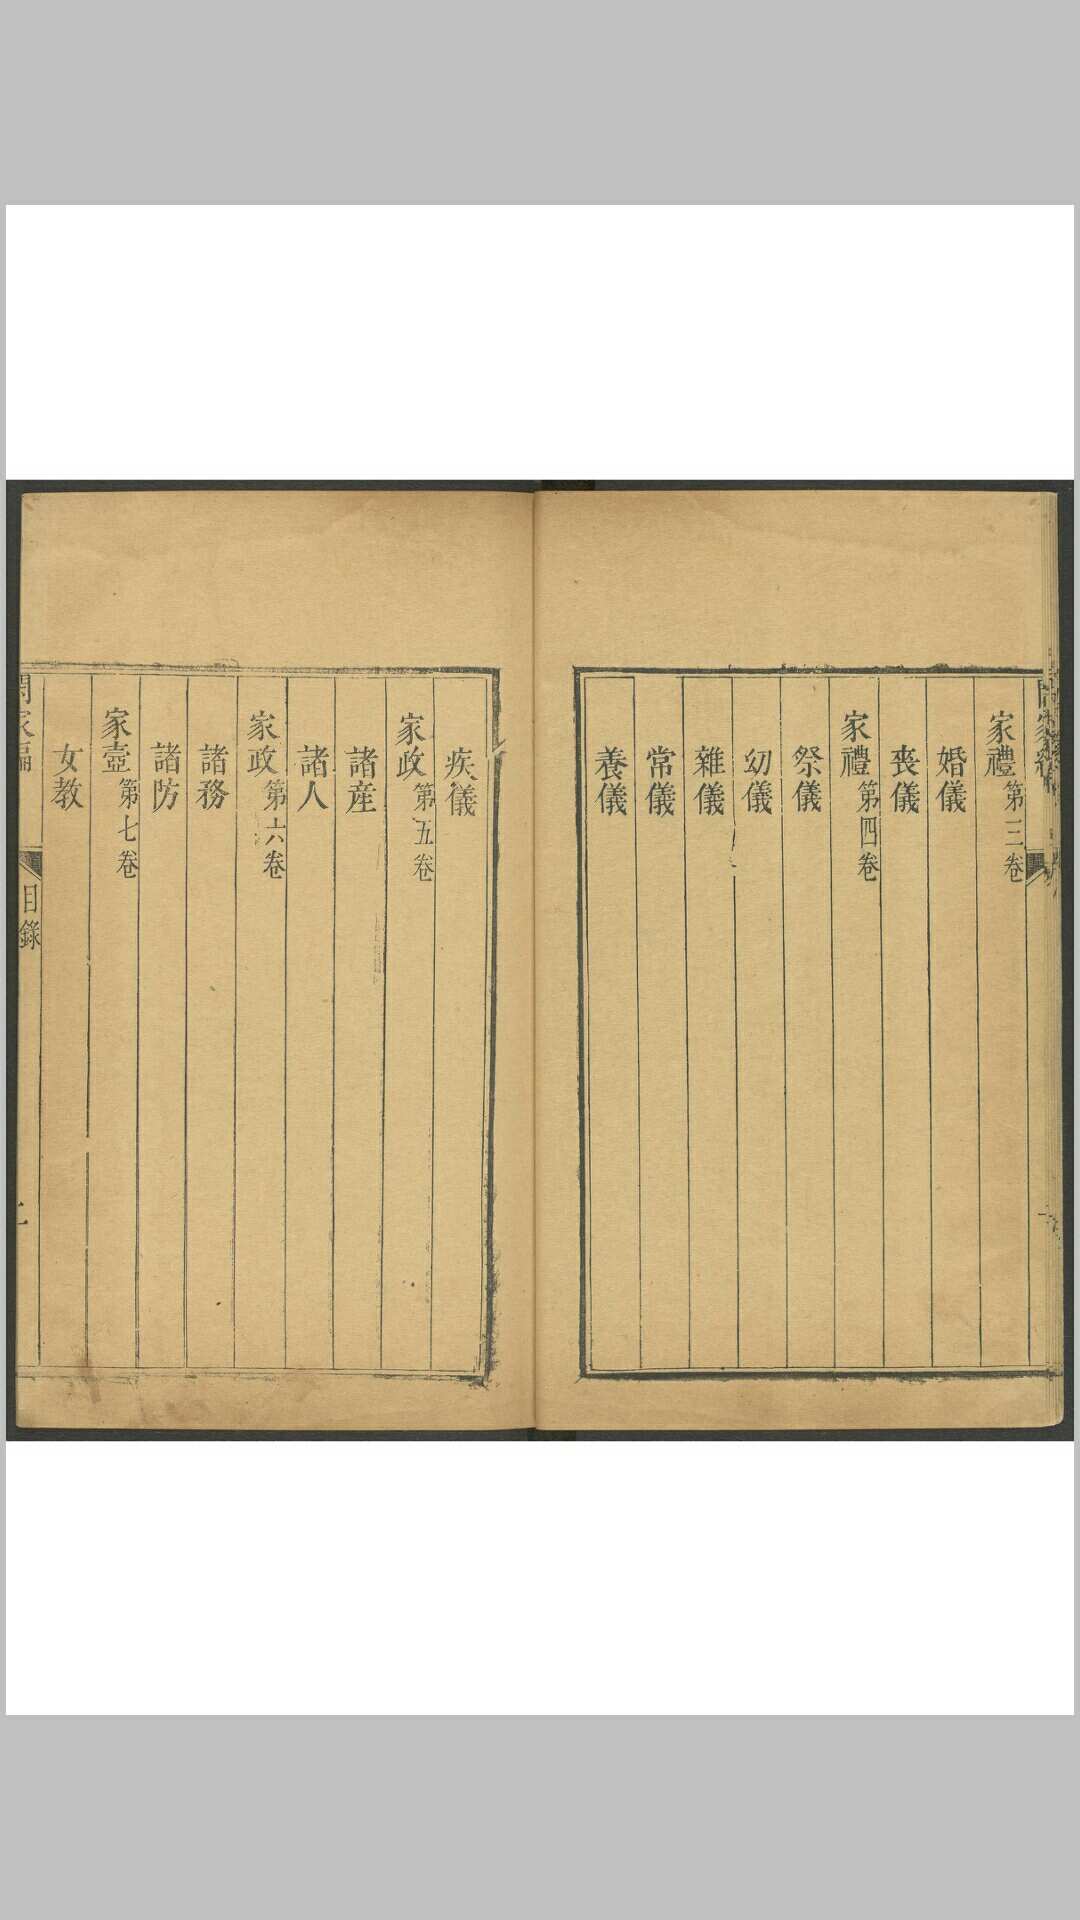 家禮第三卷
婚儀
喪儀
家禮第四卷
祭儀
幼儀
雜儀
常儀
養儀
疾儀
家政第五卷
諸產
諸人
家政第六卷
諸務
諸防
家壼第七卷
女教
閑家編
目錄